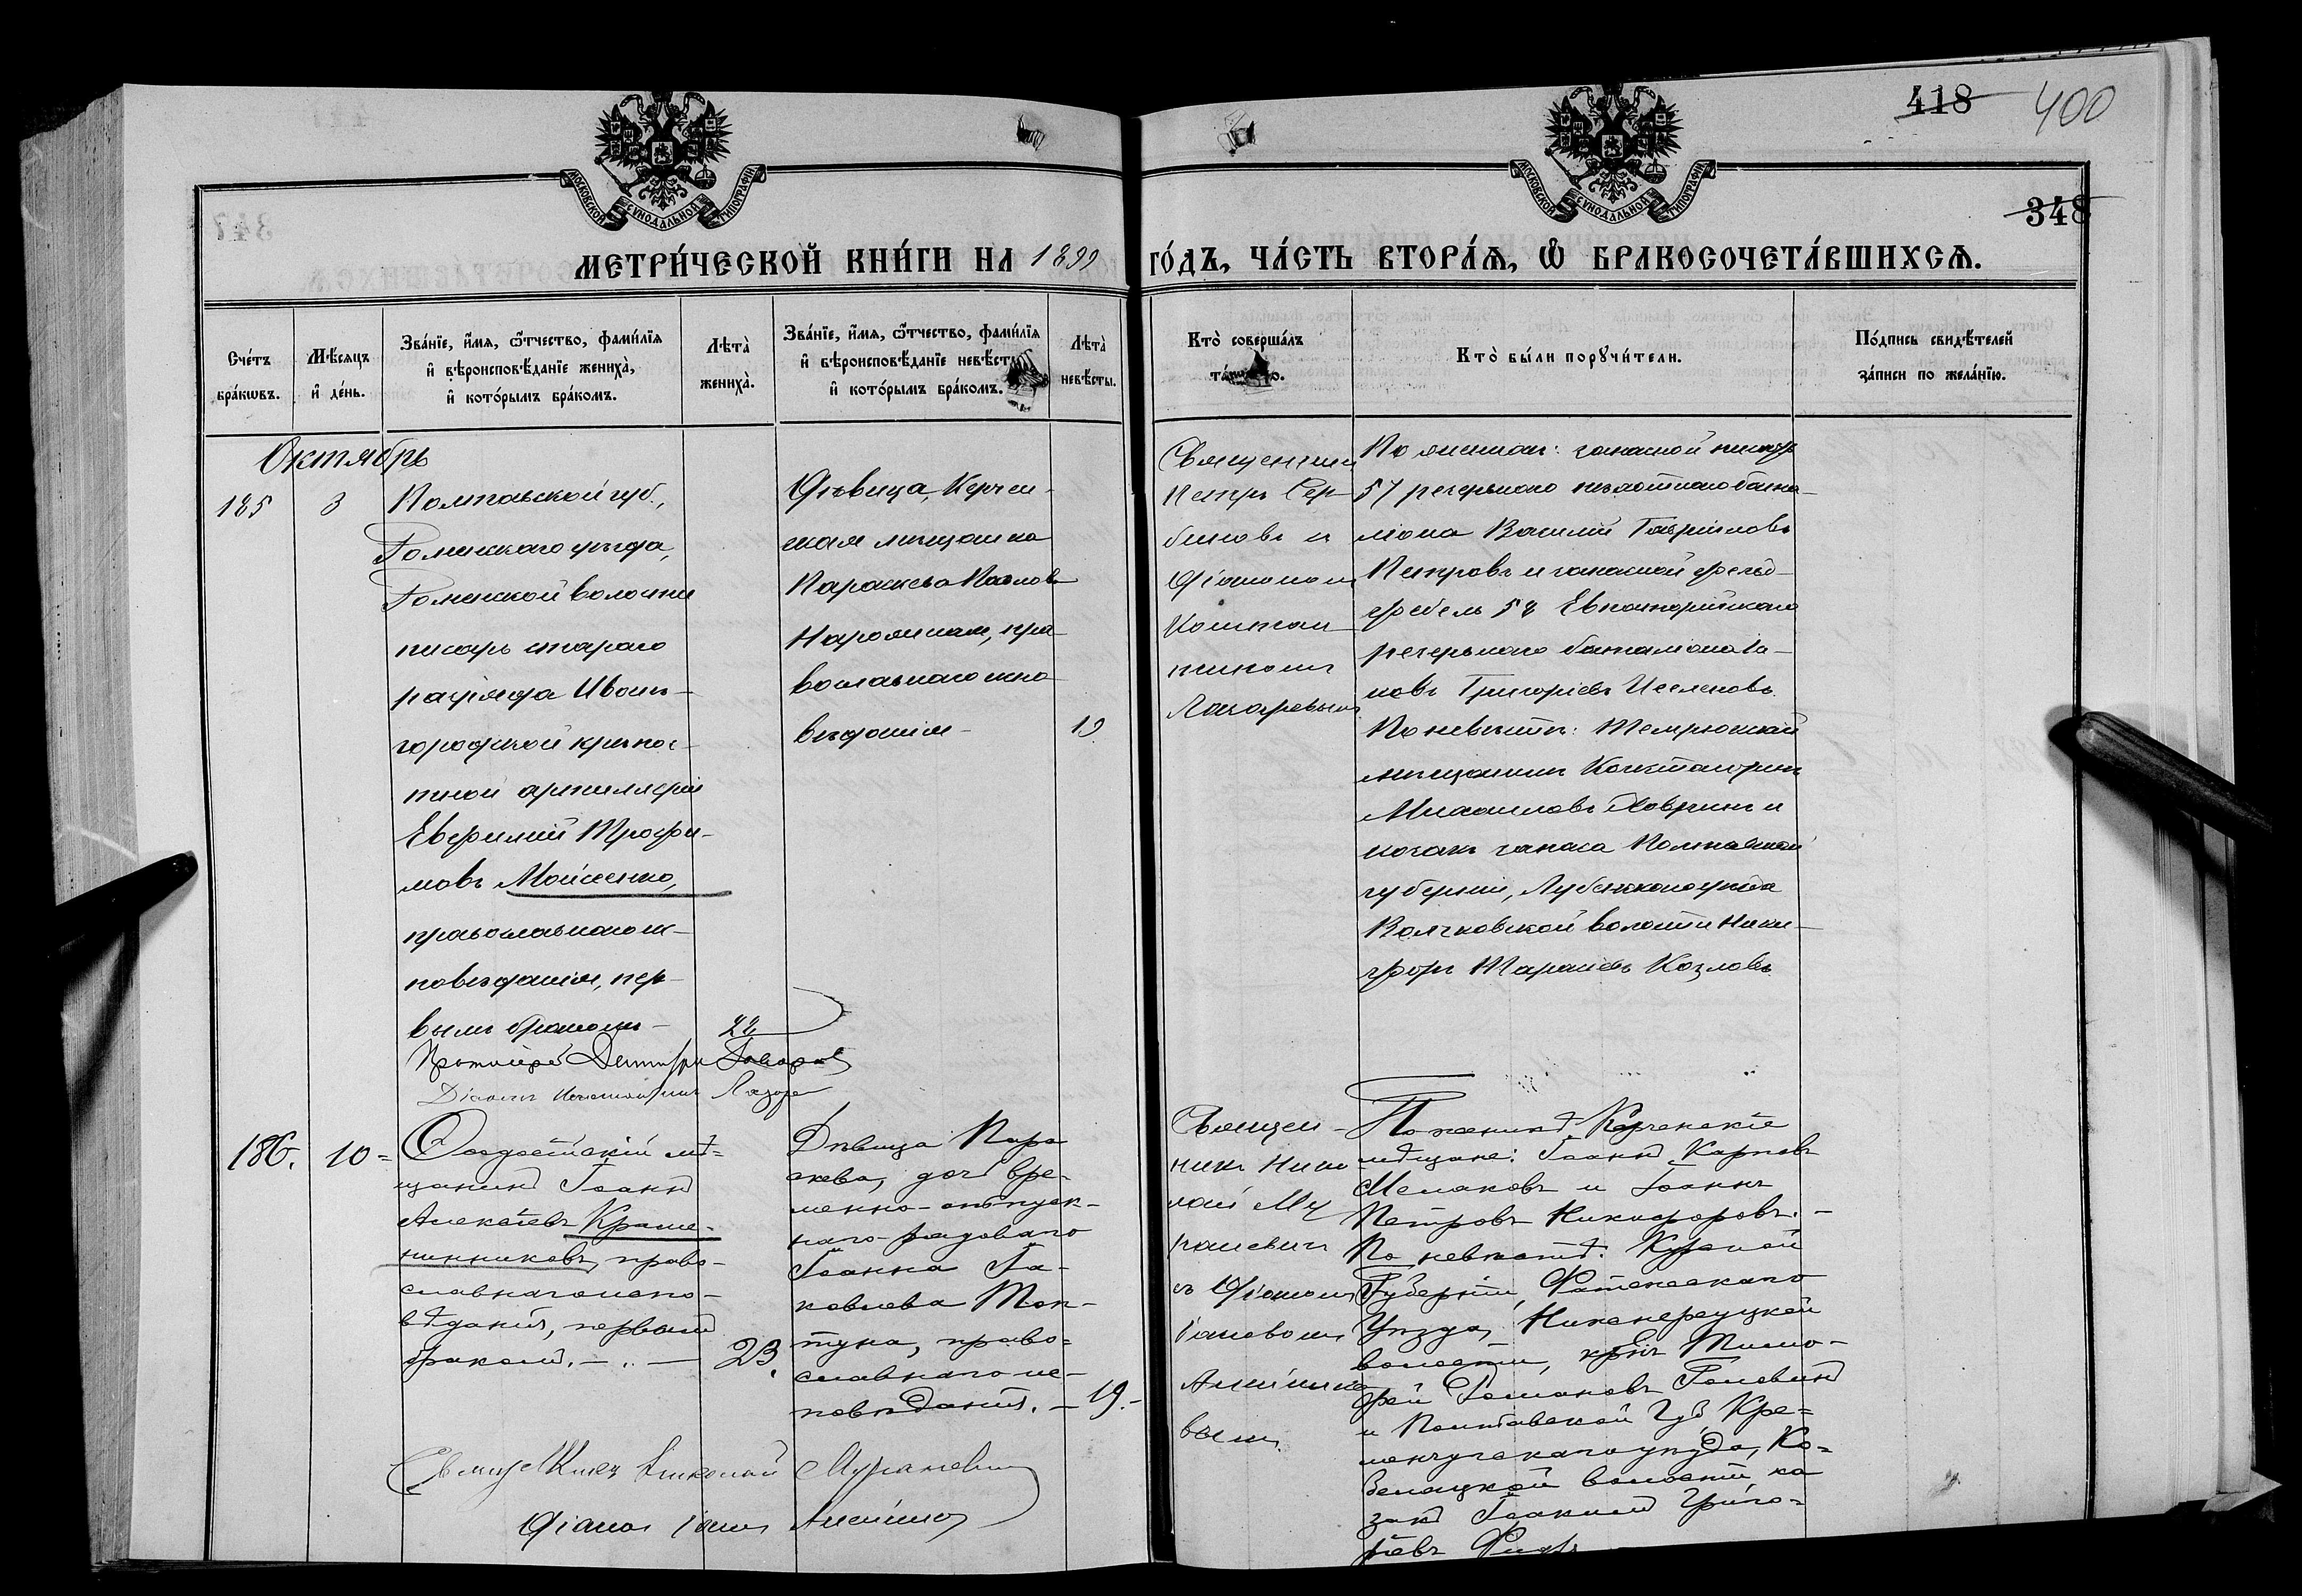 418
400
348
МОСКОВСКОЙ СѴНОДАЛЬНОЙ ТИПОГРАФІИ
МОСКОВСКОЙ СѴНОДАЛЬНОЙ ТИПОГРАФІИ
МЕТРИ́ЧЕСКОЙ КНИ́ГИ НА 1899 ГО́ДЪ, ЧА́СТЬ ВТОРА́Я, Ѡ БРАКОСОЧЕТА́ВШИХСЯ.
Сче́тъ
бра́кѡвъ.
Мѣ́сяцъ
и҆ де́нь.
Зва́нїе, и҆́мя, ѻ҆́тчество, фами́лїя
и҆ вѣроисповѣ́данїе жениха̀,
и҆ кото́рымъ бра́комъ.
Лѣта̀
жениха̀.
Зва́нїе, и҆́мя, ѻ҆́тчество, фами́лїя
и҆ вѣроисповѣ́данїе невѣ́сты
и҆ кото́рымъ бра́комъ.
Лѣта̀
невѣ́сты.
Кто̀ соверша́лъ
Кто̀ бы́ли порꙋчи́тели.
По́дпись свидѣ́телей
за́писи по жела́нїю.
Октябрь
185
3
Полтавской губ.,
Роменскаго уѣзда,
Роменской волости
писарь стараго
разряда Иван-
городской крѣпос-
тной артиллеріи
Евфимій Трофи-
мовъ Мойсеенко,
православнаго ис-
повѣданія, пер-
вымъ бракомъ
22
Дѣвица, Керчен-
ская мѣщанка
Параскева Павлова
православнаго испо-
вѣданія
19
Священникъ
Петръ Сер-
биновъ и
Діакономъ
Констан-
тиномъ
Лазаревымъ
По женихѣ: запасной писарь
57 резервнаго пѣхотнаго бата-
ліона Василій Гавриловъ
Петровъ и запасной фельд-
фебель 58 Евпаторійскаго
резервнаго баталіона Іа-
ковъ Григорьевъ
По невѣстѣ: Темрюкскій
мѣщанинъ Константинъ
Михаиловъ
козакъ запаса Полтавской
губерніи, Лубенскаго уѣзда
волости Ники-
форъ Тарасіевъ Козловъ
Протоіерей Димитрій
Діаконъ Константинъ Лазарев
186.
10
мѣ-
щанинъ Іоаннъ
Алексѣевъ Краше-
нинниковъ, право-
славнаго испо-
вѣданія, первымъ
бракомъ.
23.
Дѣвица Пара-
скева, дочь вре-
менно-отпуск-
наго рядоваго
Іоанна Іа-
ковлева Топ-
туна, право-
славнаго ис-
повѣданія.
19.
Священ-
никъ Нико-
лай Му-
раневичъ
съ Діакономъ
Іаковомъ
По женихѣ Керченскіе
мѣщане: Іоаннъ Карповъ
и Іоаннъ
Петровъ Никифоровъ.
По невѣстѣ: Курской
Губерніи, Фатежскаго
Уѣзда, Нижнереутской
волости, крнъ Тимо-
фей Романовъ Головинъ
и Полтавской Губ, Кре-
менчугскаго уѣзда, Ко-
беляцкой волости, ка-
закъ Іоакимъ Григо-
рьевъ
Священникъ Николай Мураневичъ
Діаконъ Іаковъ